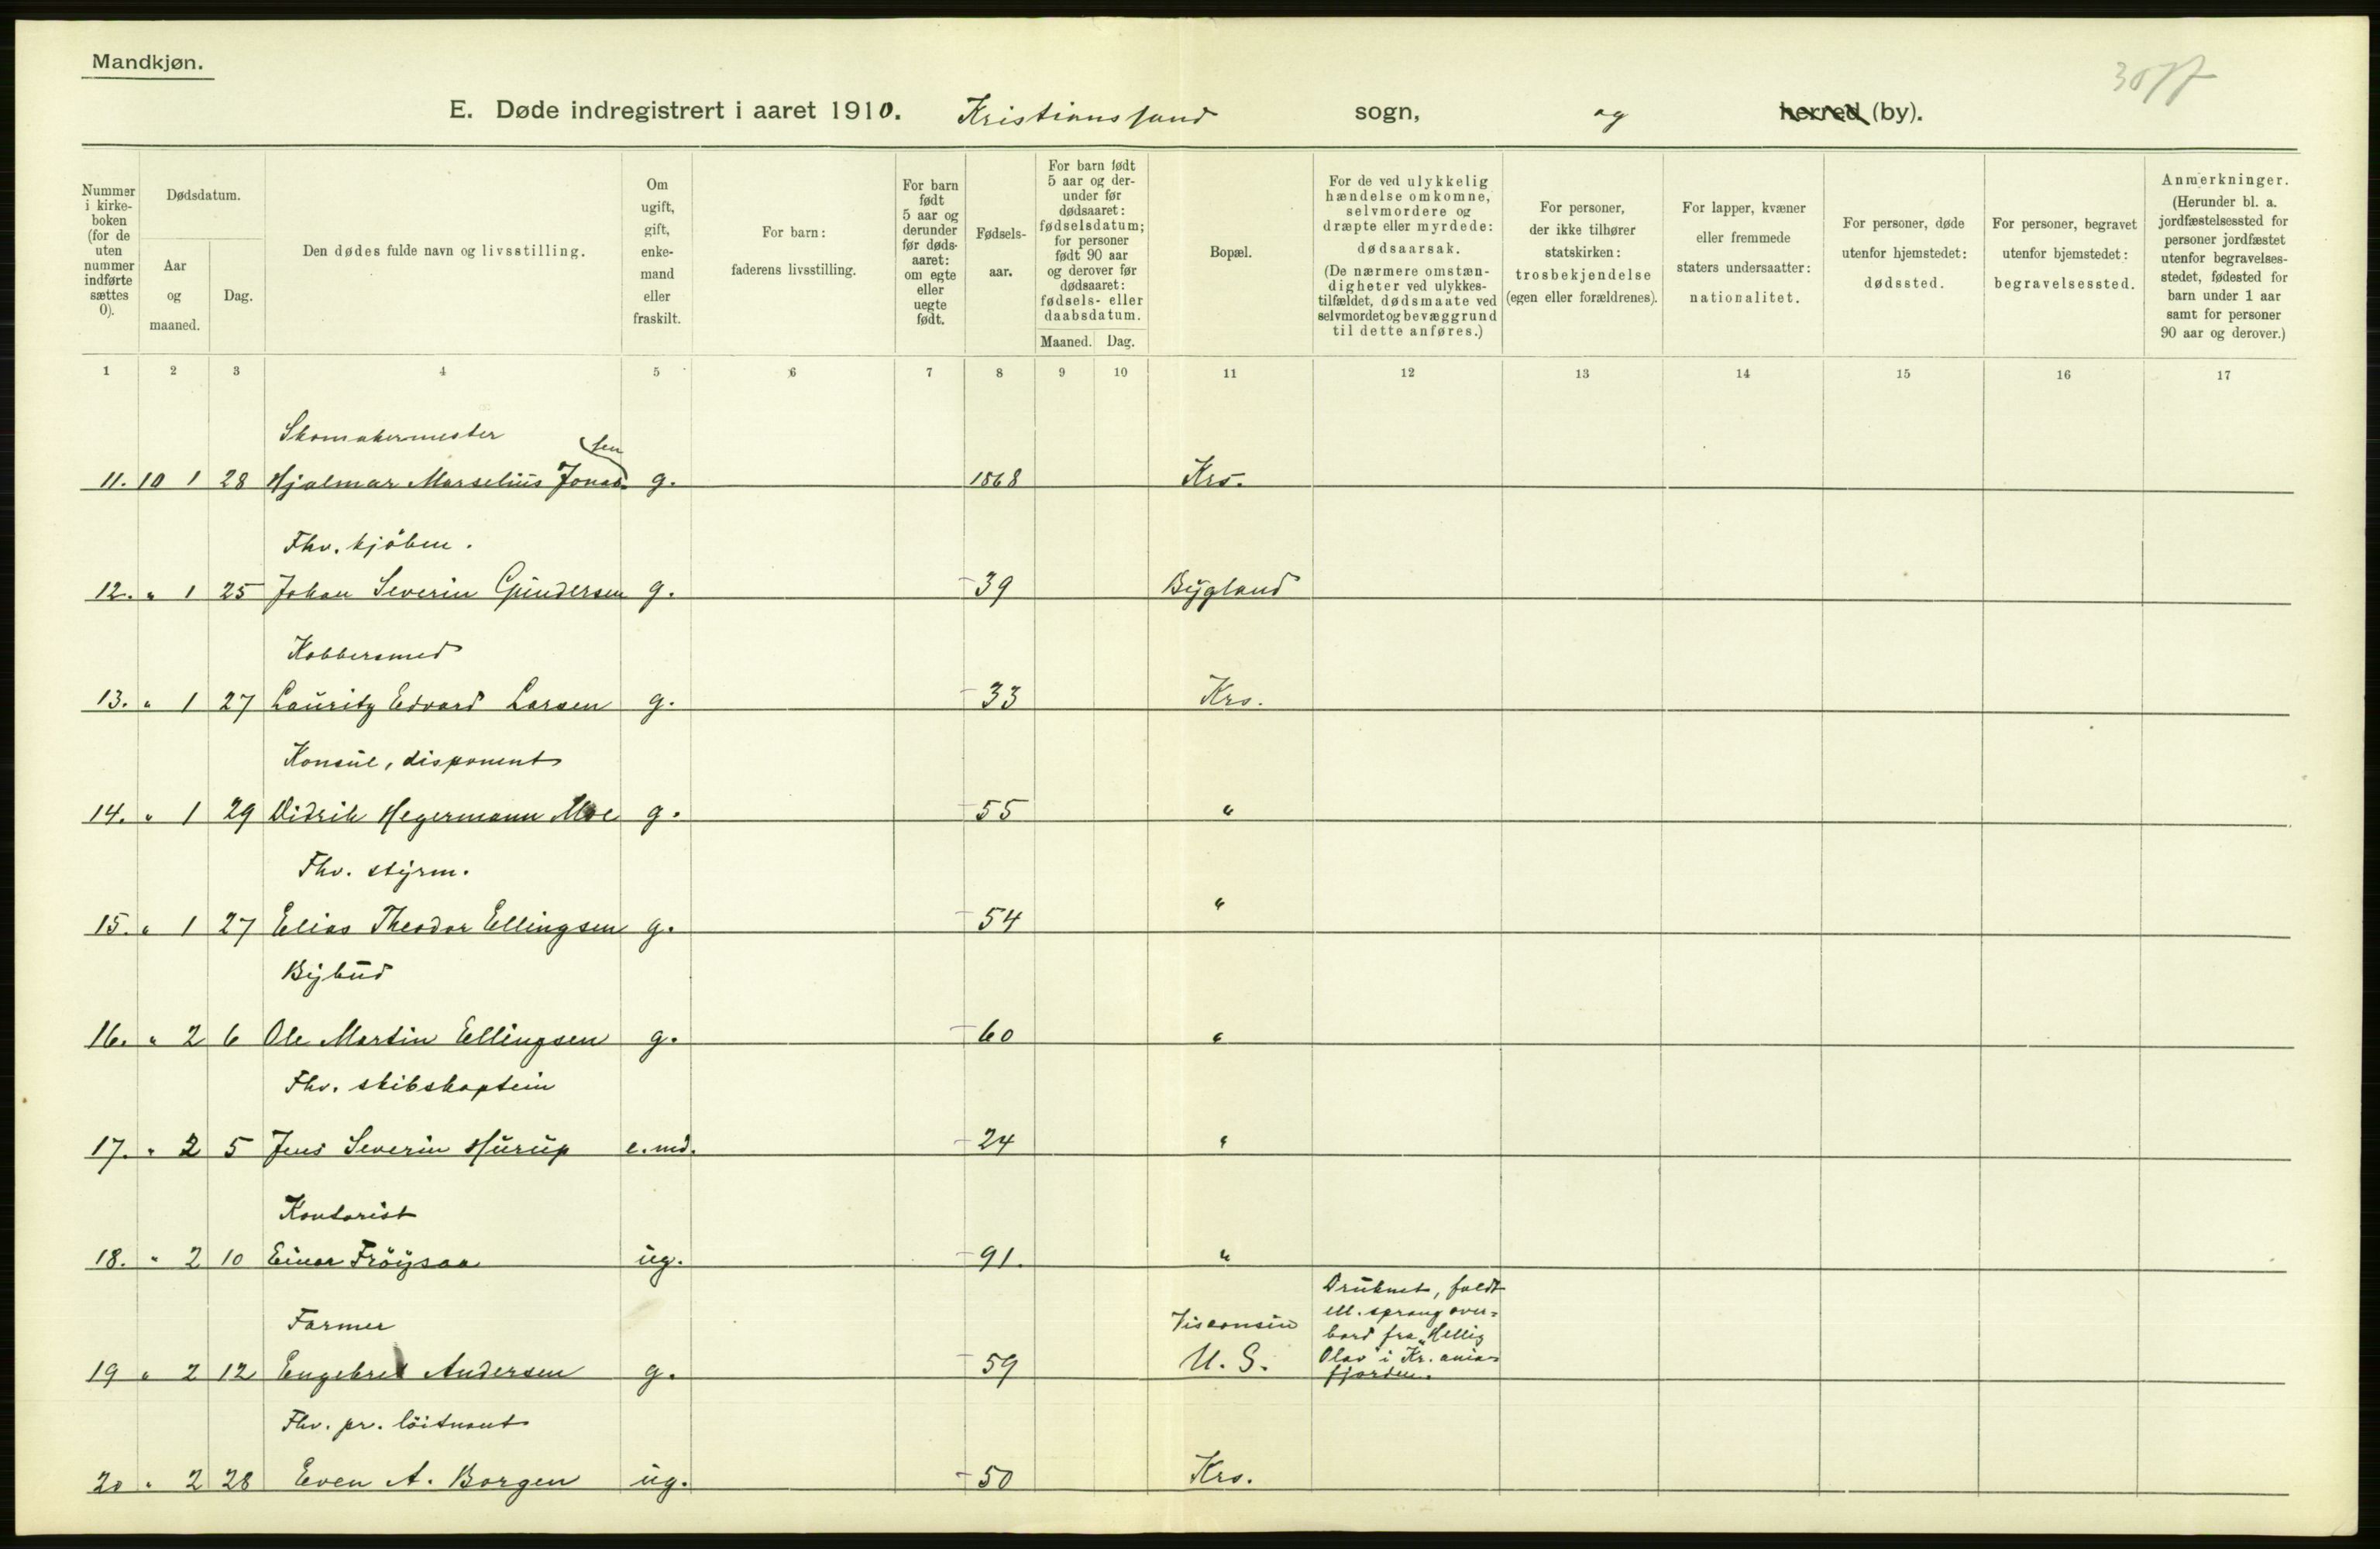 Mandkjøn.
E. Døde indregistrert i aaret 1910. Kristianssand sogn, og herred (by).
Nummer i kirke-boken (for de uten nummer indførte sættes 0).
Dødsdatum.
Aar og maaned.
Dag.
Den dødes fulde navn og livsstilling.
Om ugift, gift, enke-mand eller fraskilt.
For barn: faderens livsstilling.
For barn født 5 aar og derunder før døds-aaret: om egte eller uegte født.
Fødsels-aar.
For barn født 5 aar og der-under før dødsaaret: fødselsdatum; for personer født 90 aar og derover før dødsaaret: fødsels- eller daabsdatum.
Maaned. Dag.
Bopæl.
For de ved ulykkelig hændelse omkomne, selvmordere og dræpte eller myrdede: dødsaarsak. (De nærmere omstæn-digheter ved ulykkes-tilfældet, dødsmaate ved selvmordet og bevæggrund til dette anføres.)
For personer, der ikke tilhører statskirken: trosbekjendelse (egen eller forældrenes).
For lapper, kvæner eller fremmede staters undersaatter: nationalitet.
For personer, døde utenfor hjemstedet: dødssted.
For personer, begravet utenfor hjemstedet: begravelsessted.
Anmerkninger. (Herunder bl. a. jordfæstelsessted for personer jordfæstet utenfor begravelses-stedet, fødested for barn under 1 aar samt for personer 90 aar og derover.)
1 2 3 4 5 6 7 8 9 10 11 12 13 14 15 16 17
Skomakermester
sen
11. 10 1 28 Hjalmar Marselius Jonas- g. 1868 Krs.
Fhv. kjöbm.
12. " 1 25 Johan Severin Gundersen g. -39 Bygland
Kobbersmed
13. " 1 27 Lauritz Edvard Larsen g. -33 Krs.
Konsul, disponent
14. " 1 29 Didrik Hegermann Moe g. -55 "
Fhv. styrm.
15. " 1 27 Elias Theodor Ellingsen g. -54 "
Bybud
16. " 2 6 Ole Martin Ellingsen g. -60 "
Fhv. skibskaptein
17. " 2 5 Jens Severin Hurup e.md. -24 "
Kontorist
18. " 2 10 Einar Fröysaa ug. -91. "
Farmer
19 " 2 12 Engebret Andersen g. -59 Visconsin U. S. Druknet, faldt ell. sprang over-bord fra "Hellig Olav" i Kr.ania-fjorden.
Fhv. pr. löitnant
20 " 2 28 Even A. Borgen ug. -50 Krs.